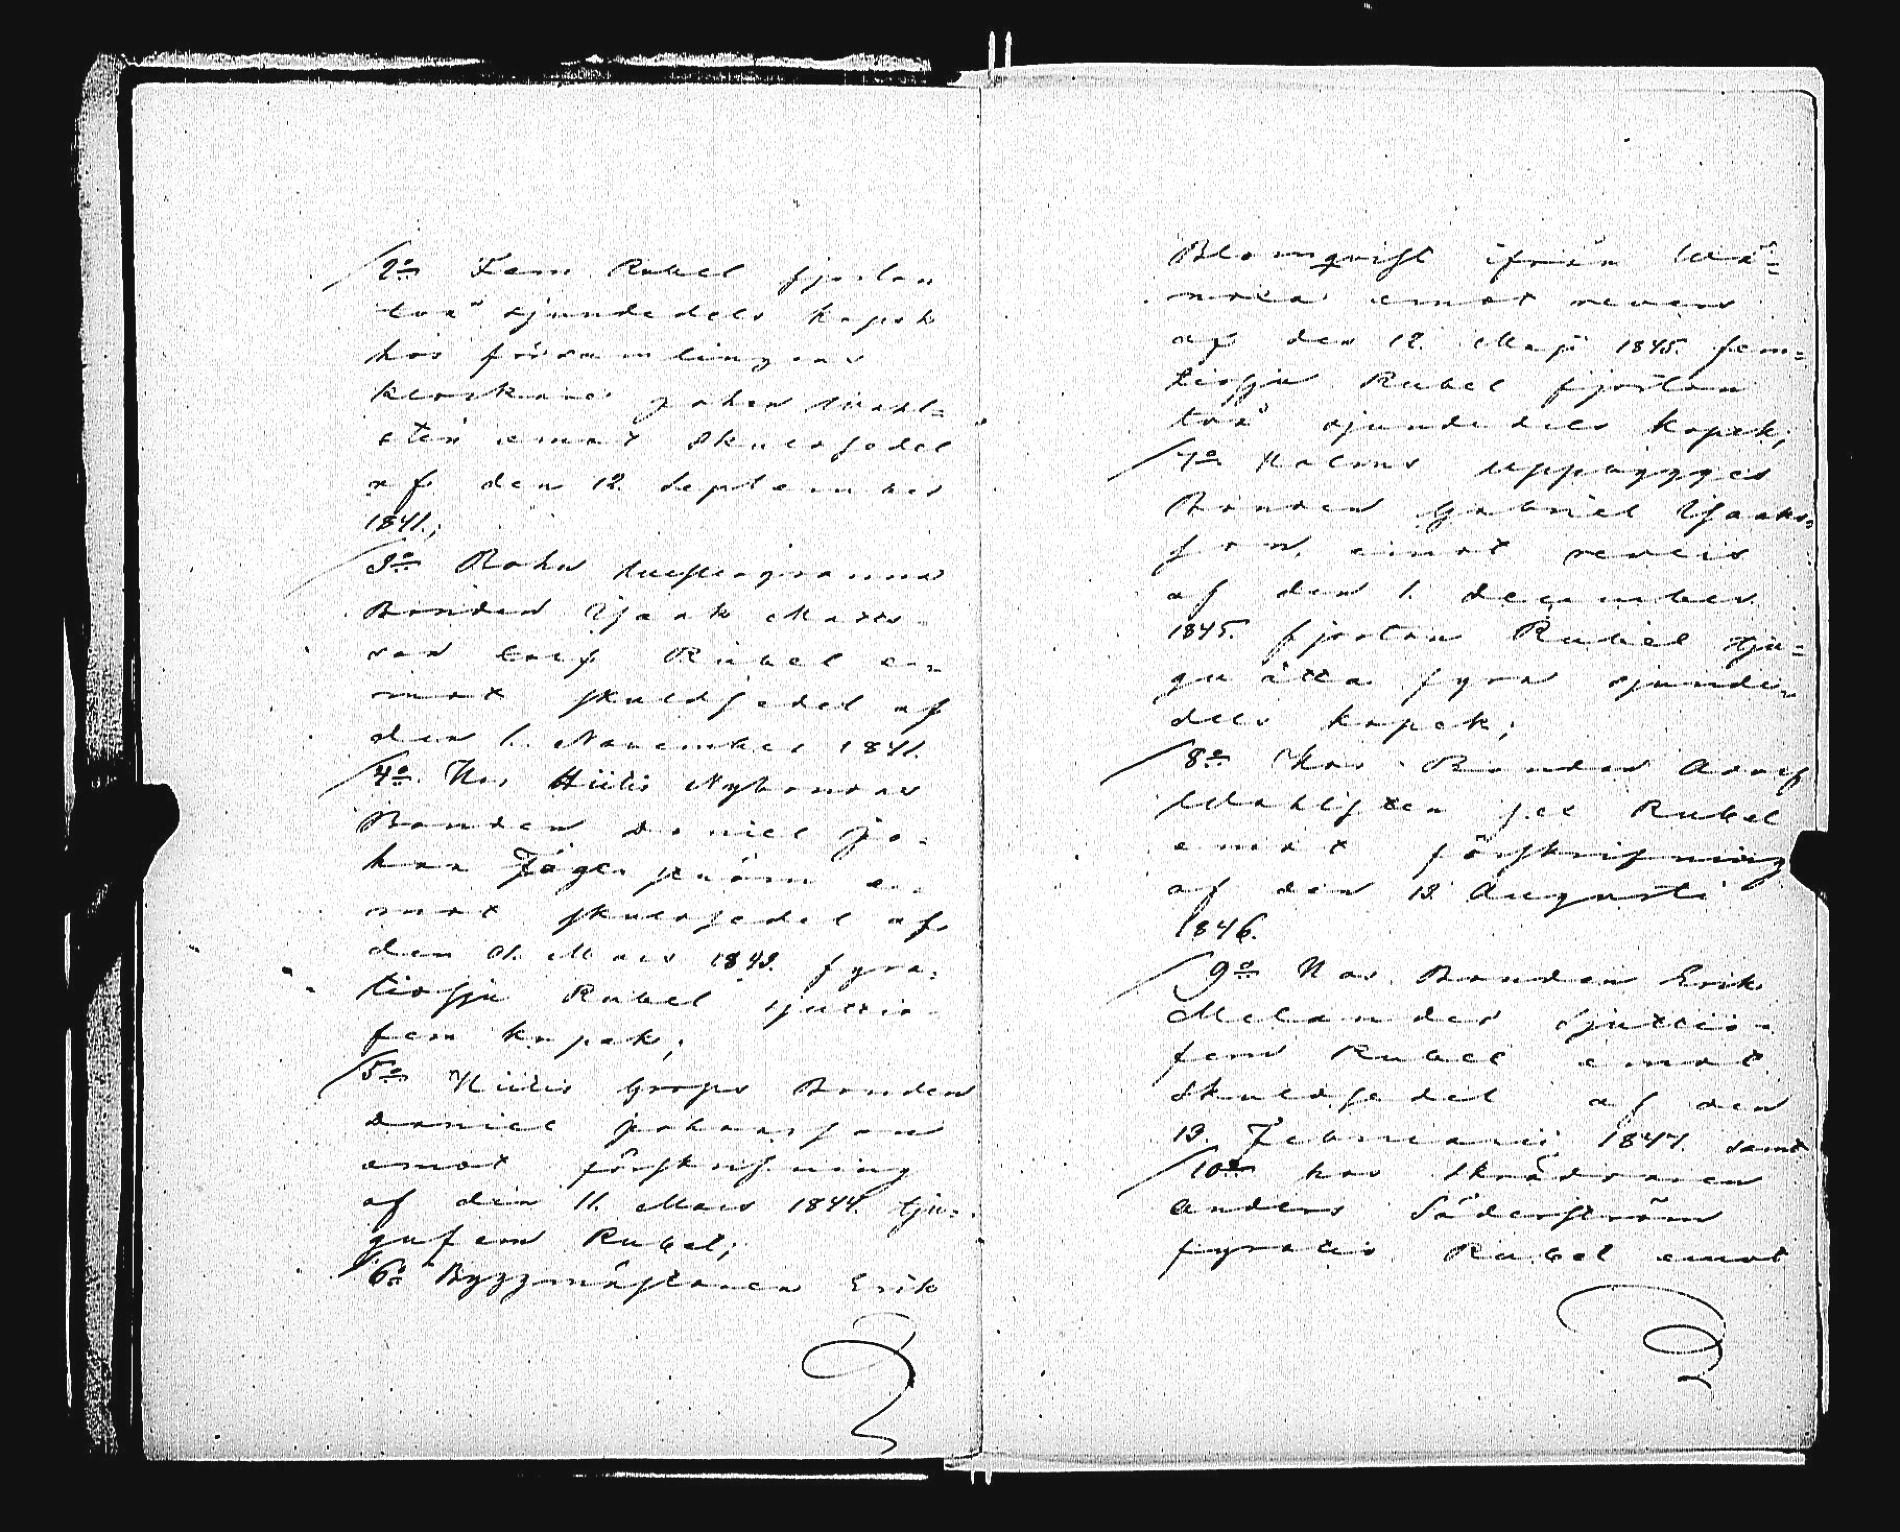 2:o Fem Rubel fjorton
två sjundedels kopek
hos församlingens
klockare Johan Wahl=
sten emot Skuldsedel
af den 12. September
1841.;
3:o Bonden Isaak Matts-
son tolf Rubel e-
mot skuldsedel af
den 1. November 1841.
4:o Hos Hiitis Nybondas
Bonden Daniel Jo-
han Jägerström e-
mot skuldsedel af
den Mars 1843. fyra-
tiosju Rubel sjuttio-
fem kopek;
5:o Hiitis Grops Bonden
Daniel Johansson
emot förskrifning
af den 11. Mars 1844. tju=
gufem Rubel;
6:o Byggmästaren Erik
Blomqvist ifrån
emot revers
af den 12. Maji 1845. fem=
tiosju Rubel fjorton
två sjundedels kopek;
7:o
Bonden Gabriel Isaks=
son emot revers
af den 1. December
1845. fjorton Rubel tju=
gu åtta fyra sjunde-
dels kopek;
8:o Hos Bonden Adolf
Wahlsten sex Rubel
emot förskrifning
af den 13. Augusti
1846.
9:o Hos Bonden Erik
Melander Sjuttio-
fem Rubel emot
Skuldsedel af den
13. Februarii 1847. samt
10:o hos Skräddaren
Anders Söderström
fyratio Rubel emot